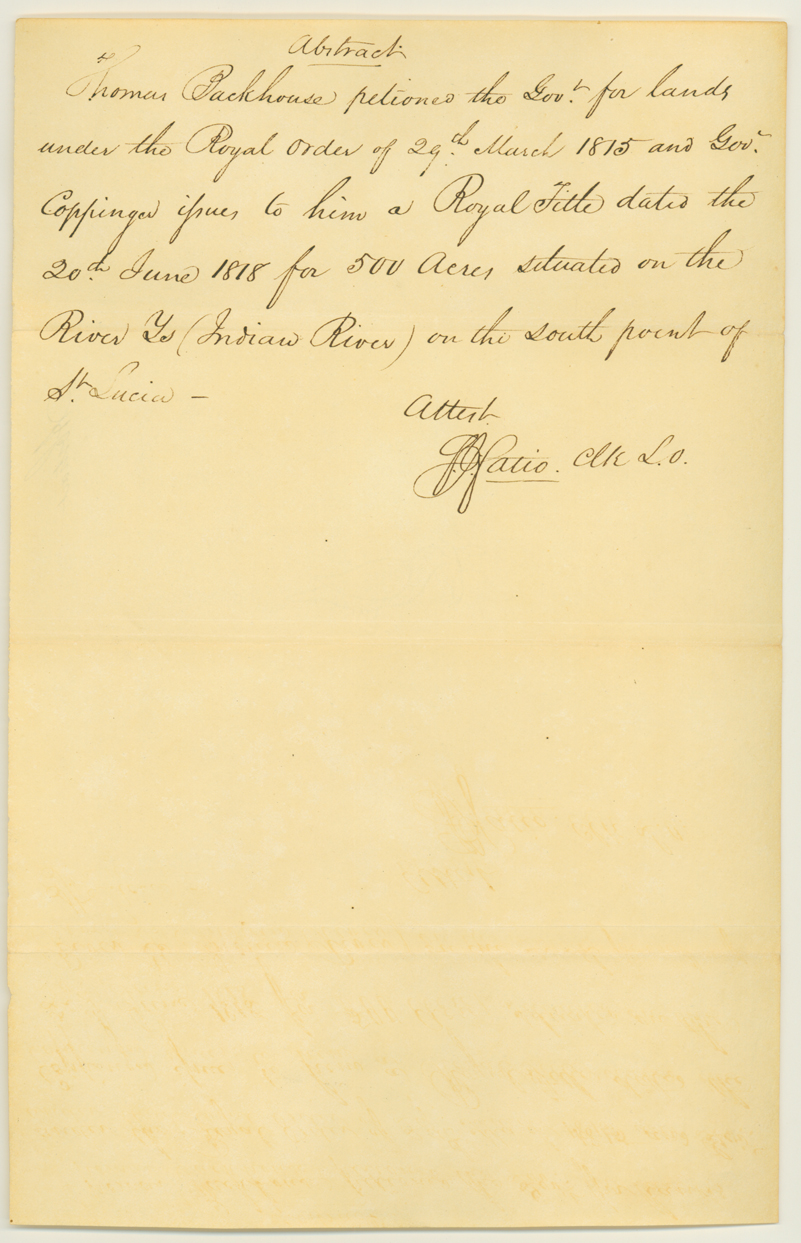 Abstract
Thomas Backhouse petioned the Govt. for lands
under the Royal Order of 29th. March 1815 and Govr.
Coppinger issues to him a Royal Title dated the
20th. June 1818 for 500 Acres situated on the
River Ys (Indian River) on the south point of
St. Lucia –
Attest
Clk L.O.